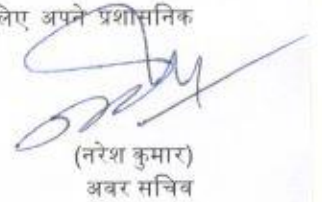 लिए अपने प्रशासनिक
(नरेश कुमार)
अवर सचिव